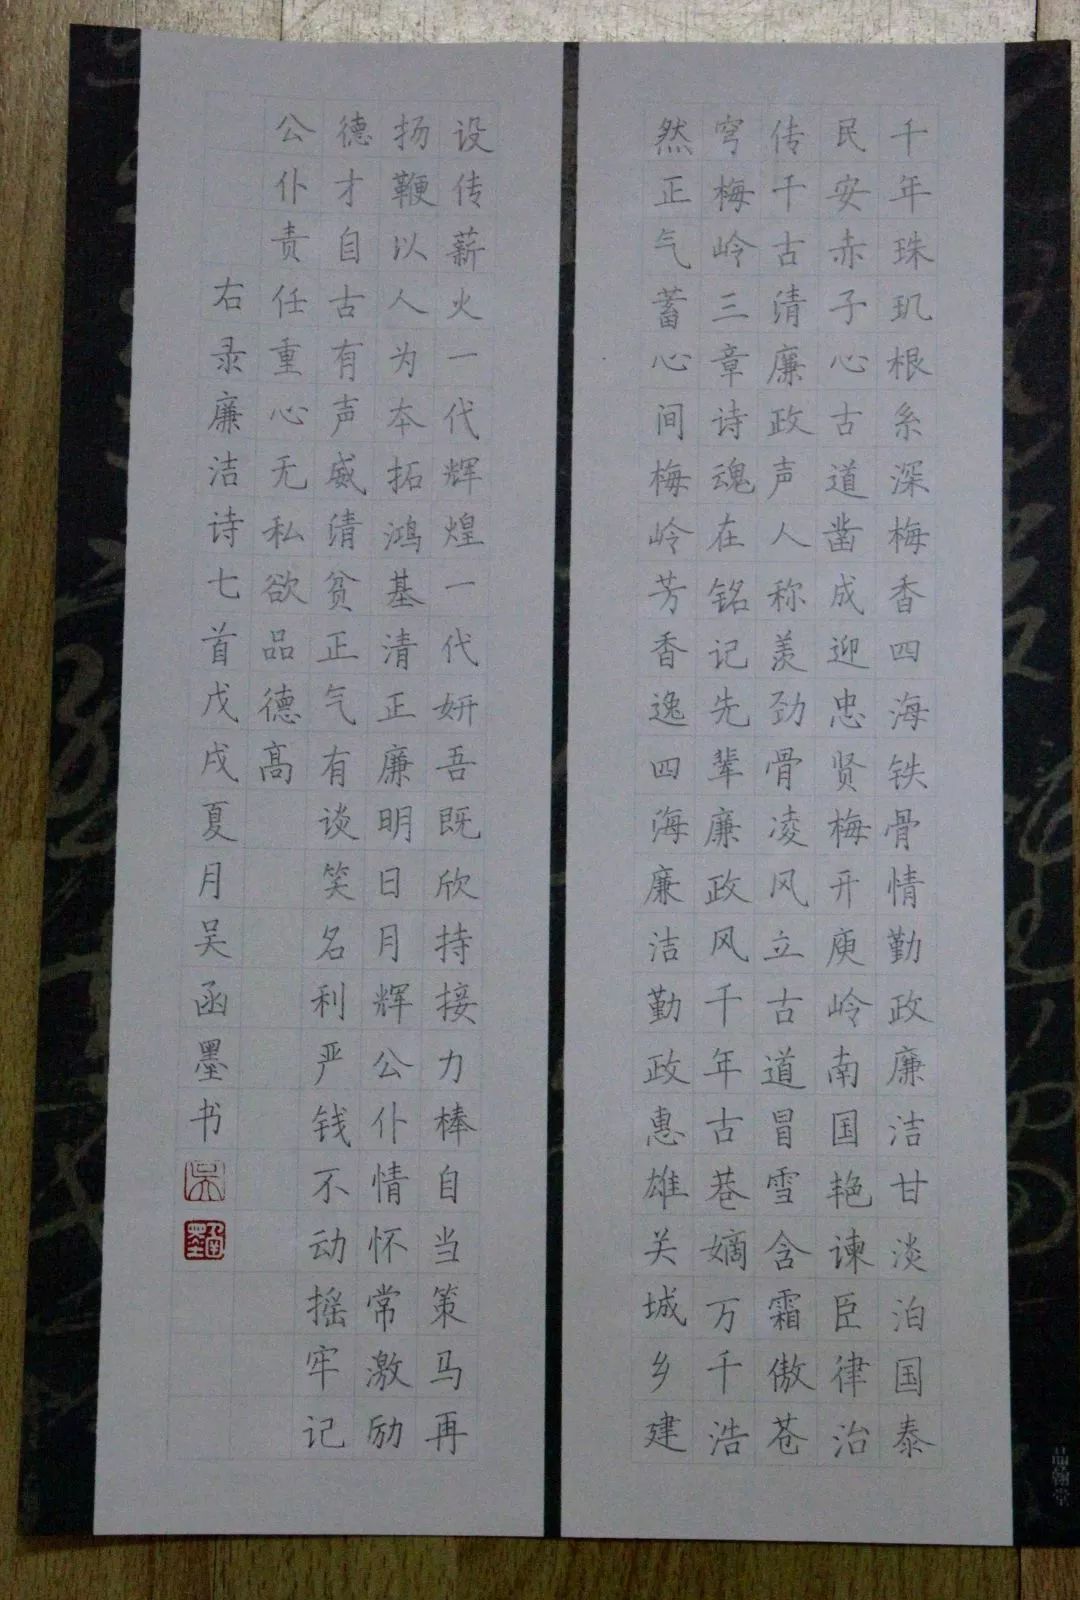 千年珠玑根系深梅香四海铁骨情勤政廉洁甘淡泊国泰
民安赤子心古道凿成迎忠贤梅开庾岭南国艳谏臣律治
传千古清廉政声人称羡劲骨凌风立古道冒雪含霜傲苍
穹梅岭三章诗魂在铭记先辈廉政风千年古巷嫡万千浩
然正气蓄心间梅岭芳香逸四海廉洁勤政惠雄关城乡建
设传薪火一代辉煌一代妍吾既欣持接力棒自当策马再
扬鞭以人为本拓鸿基清正廉明日月辉公仆情怀常激励
德才自古有声威清贫正气有谈笑名利严钱不动摇牢记
公仆责任重心无私欲品德高
右录廉洁诗七首戊戌夏月吴函墨书
吴
函墨
品翰堂